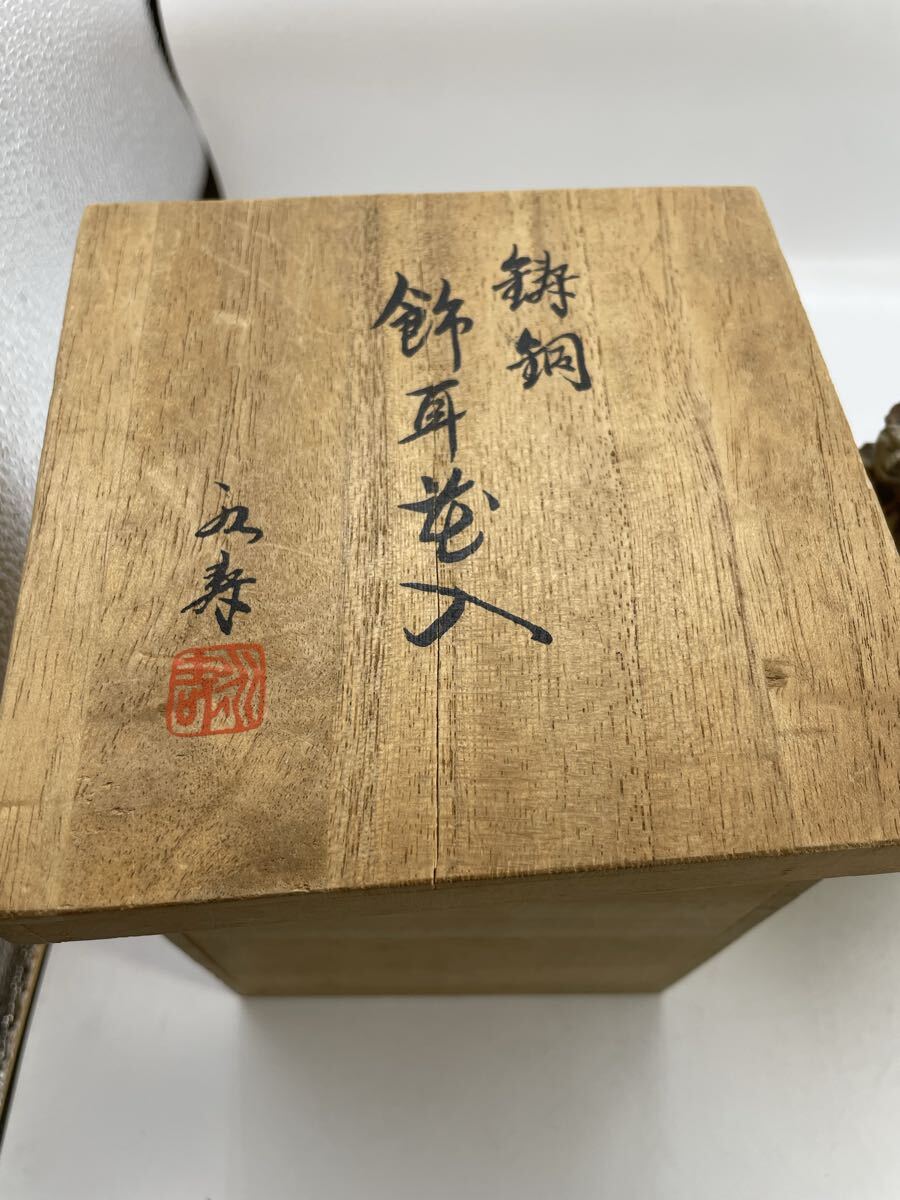 鋳銅
飾耳花入
永寿
永寿